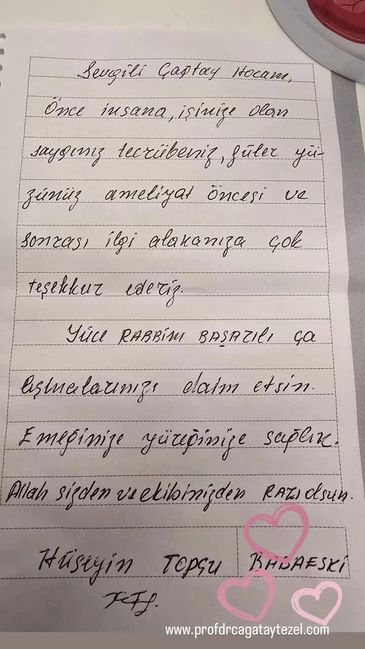 Sevgili Çağtay Hocam,
Önce insana, işinize olan
saygınız tecrübeniz, güler yü-
zünüz ameliyat öncesi ve
sonrası ilgi alakanıza çok
teşekkur ederiz.
Yüce RABBİM BAŞARILI ça
lışmalarınızı daim etsin.
Emeğinize yüreğinize sağlık.
Allah sizden ve ekibinizden RAZI olsun.
Hüseyin TOPÇU BABAESKİ
www.profdrcagataytezel.com